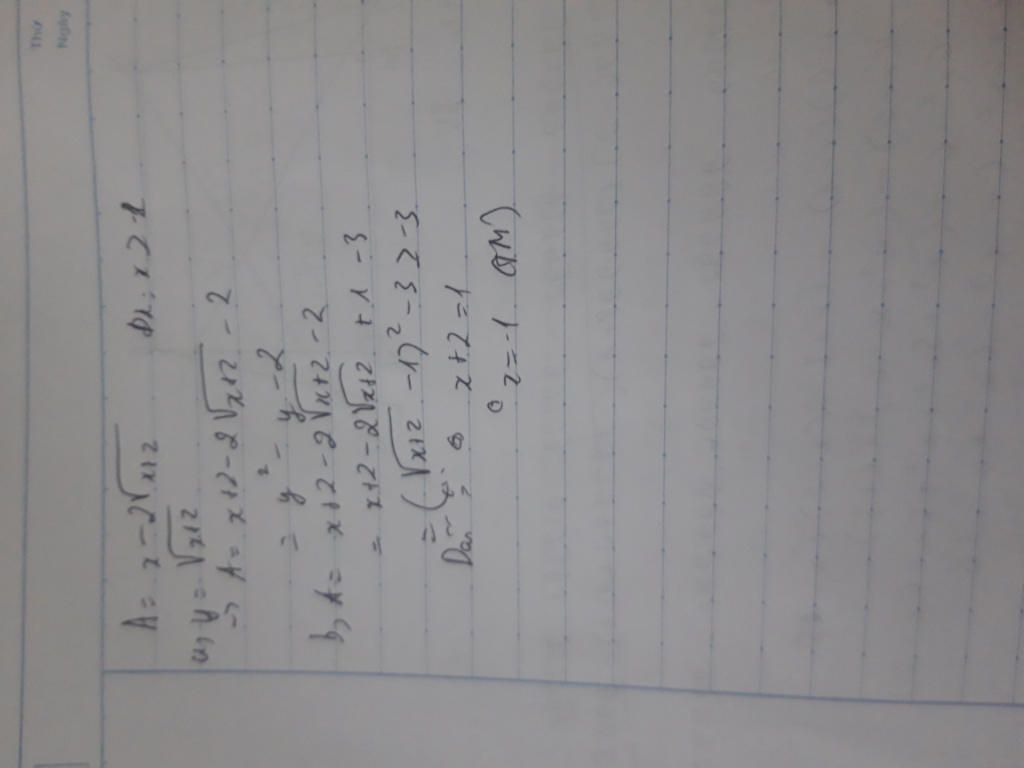 Thứ
Ngày
A = x - 2√x+2 Đk: x ≥ -2
a, y = √x+2
=> A = x+2 - 2√x+2 - 2
= y² - y - 2
b, A = x+2 - 2√x+2 - 2
= x+2 - 2√x+2 + 1 - 3
= (√x+2 - 1)² - 3 ≥ -3
x+2 = 1
x = -1 (TM)